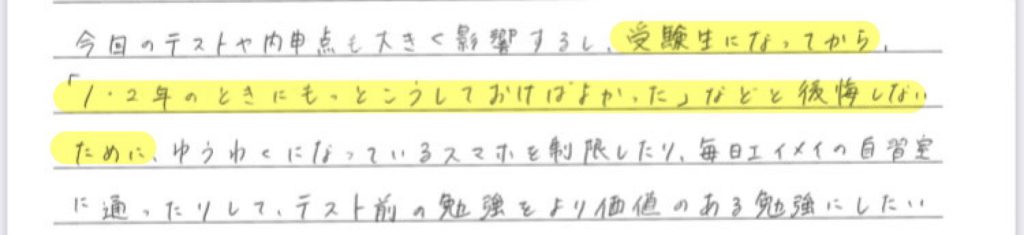 今回のテストや内申点も大きく影響するし、受験生になってから、
「1・2年のときにもっとこうしておけばよかった」などと後悔しない
ために、ゆうわくになっているスマホを制限したり、毎日エイメイの自習室
に通ったりして、テスト前の勉強をより価値のある勉強にしたい